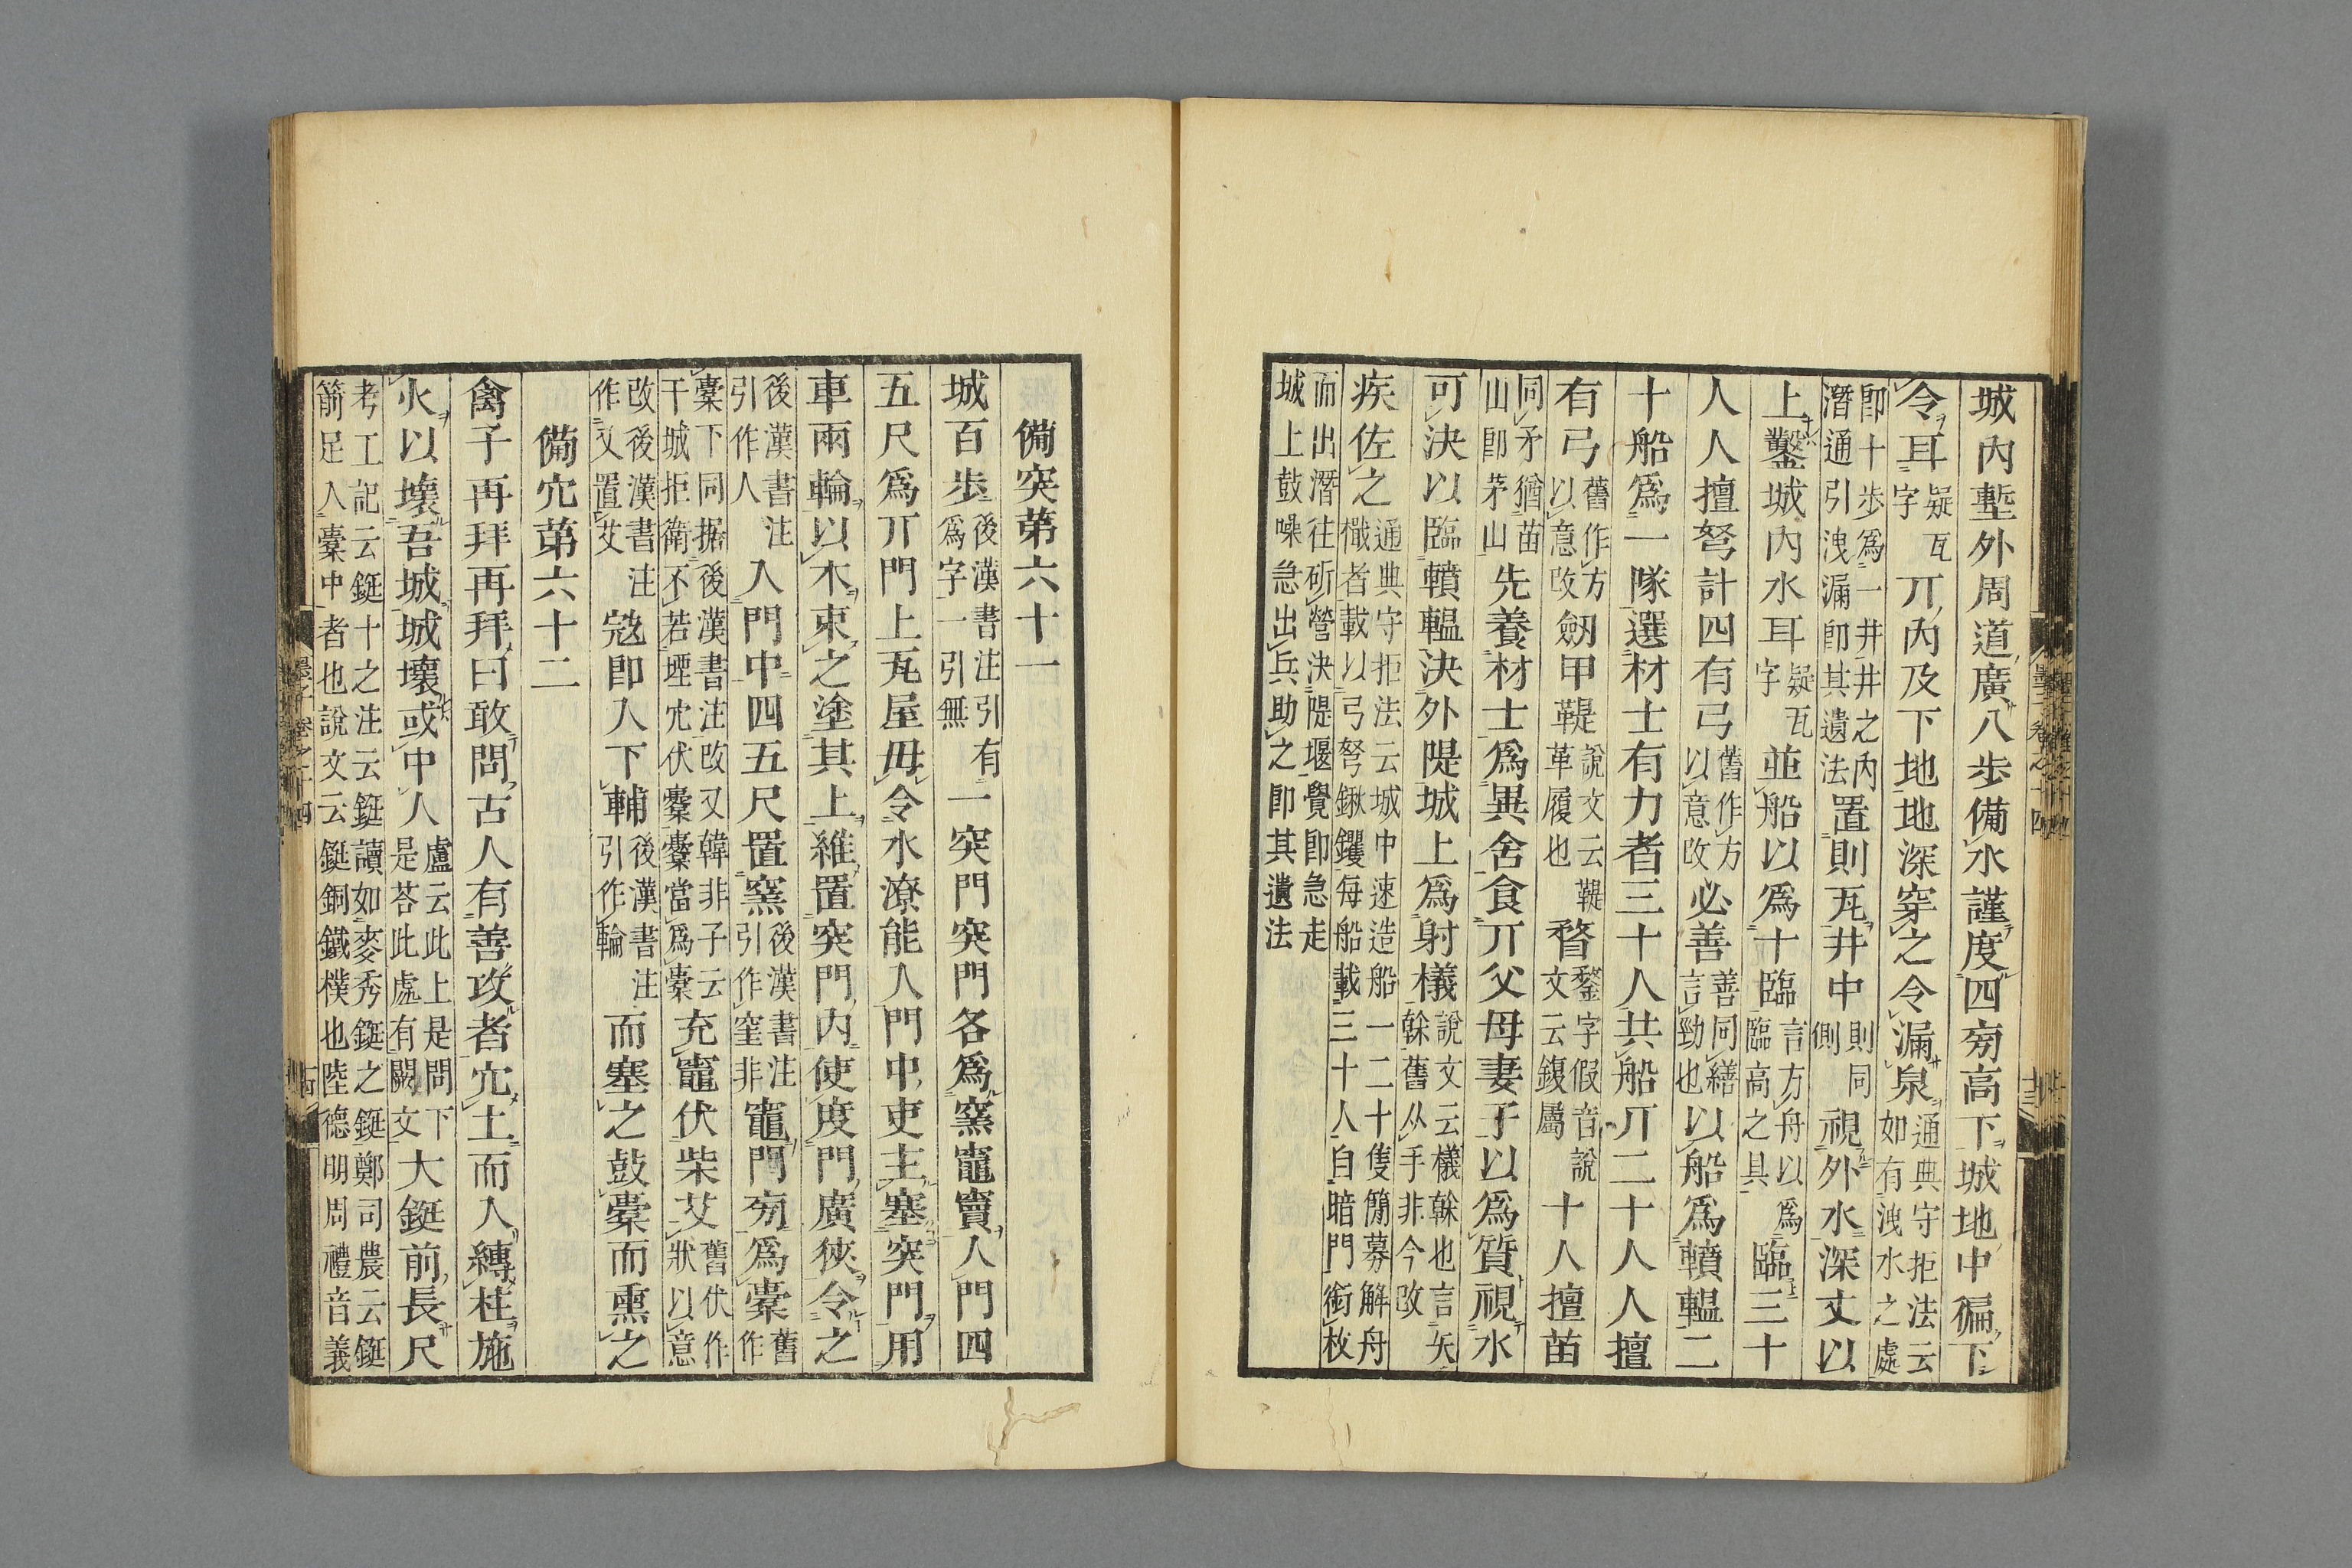 城內塹外周道廣八步備水謹度四旁高下城地中徧下
令耳疑瓦字丌內及下地地深穿之令漏泉通典守拒法云如有洩水之處
卽十步爲一井井之內潛通引洩漏卽其遺法置則瓦井中則同側視外水深丈以
上鑿城內水耳疑瓦字並船以爲十臨言方舟以爲臨高之具臨三十
人人擅弩計四有弓舊作方以意改必善善同繕言勁也以船爲轒轀二
十船爲一隊選材士有力者三十人共船丌二十人人擅
有弓舊作方以意改劒甲鞮說文云鞮革履也瞀鍪字假音說文云鍑屬十人擅苗
同矛猶苗山卽茅山先養材士爲異舍食丌父母妻子以爲質視水
可決以臨轒轀決外隄城上爲射檥說文云檥榦也言矢榦舊从手非今改
疾佐之通典守拒法云城中速造船一二十隻簡募解舟檝者載以弓弩鍬钁每船載三十人自暗門銜枚
而出潛往斫營決隄堰覺卽急走城上鼓噪急出兵助之卽其遺法
備突第六十一
城百步後漢書注引有爲字一引無一突門突門各爲窯竈竇入門四
五尺爲丌門上瓦屋毋令水潦能入門中吏主塞突門用
車兩輪以木束之塗其上維置突門內使度門廣狹令之
後漢書注引作人入門中四五尺置窯後漢書注引作窒非竈門旁爲橐舊作
橐下同据後漢書注改又韓非子云干城拒衞不若堙穴伏橐橐當爲橐充竈伏柴艾舊伏作狀以意
改後漢書注作又置艾寇卽入下輔後漢書注引作輪而塞之鼓橐而熏之
備穴第六十二
禽子再拜再拜曰敢問古人有善攻者穴土而入縛柱施
火以壞吾城城壞或中人盧云此上是問下是荅此處有闕文大鋌前長尺
考工記云鋌十之注云鋌讀如麥秀鋌之鋌鄭司農云鋌箭足入橐中者也說文云鋌銅鐵樸也陸德明周禮音義
墨子卷之十四